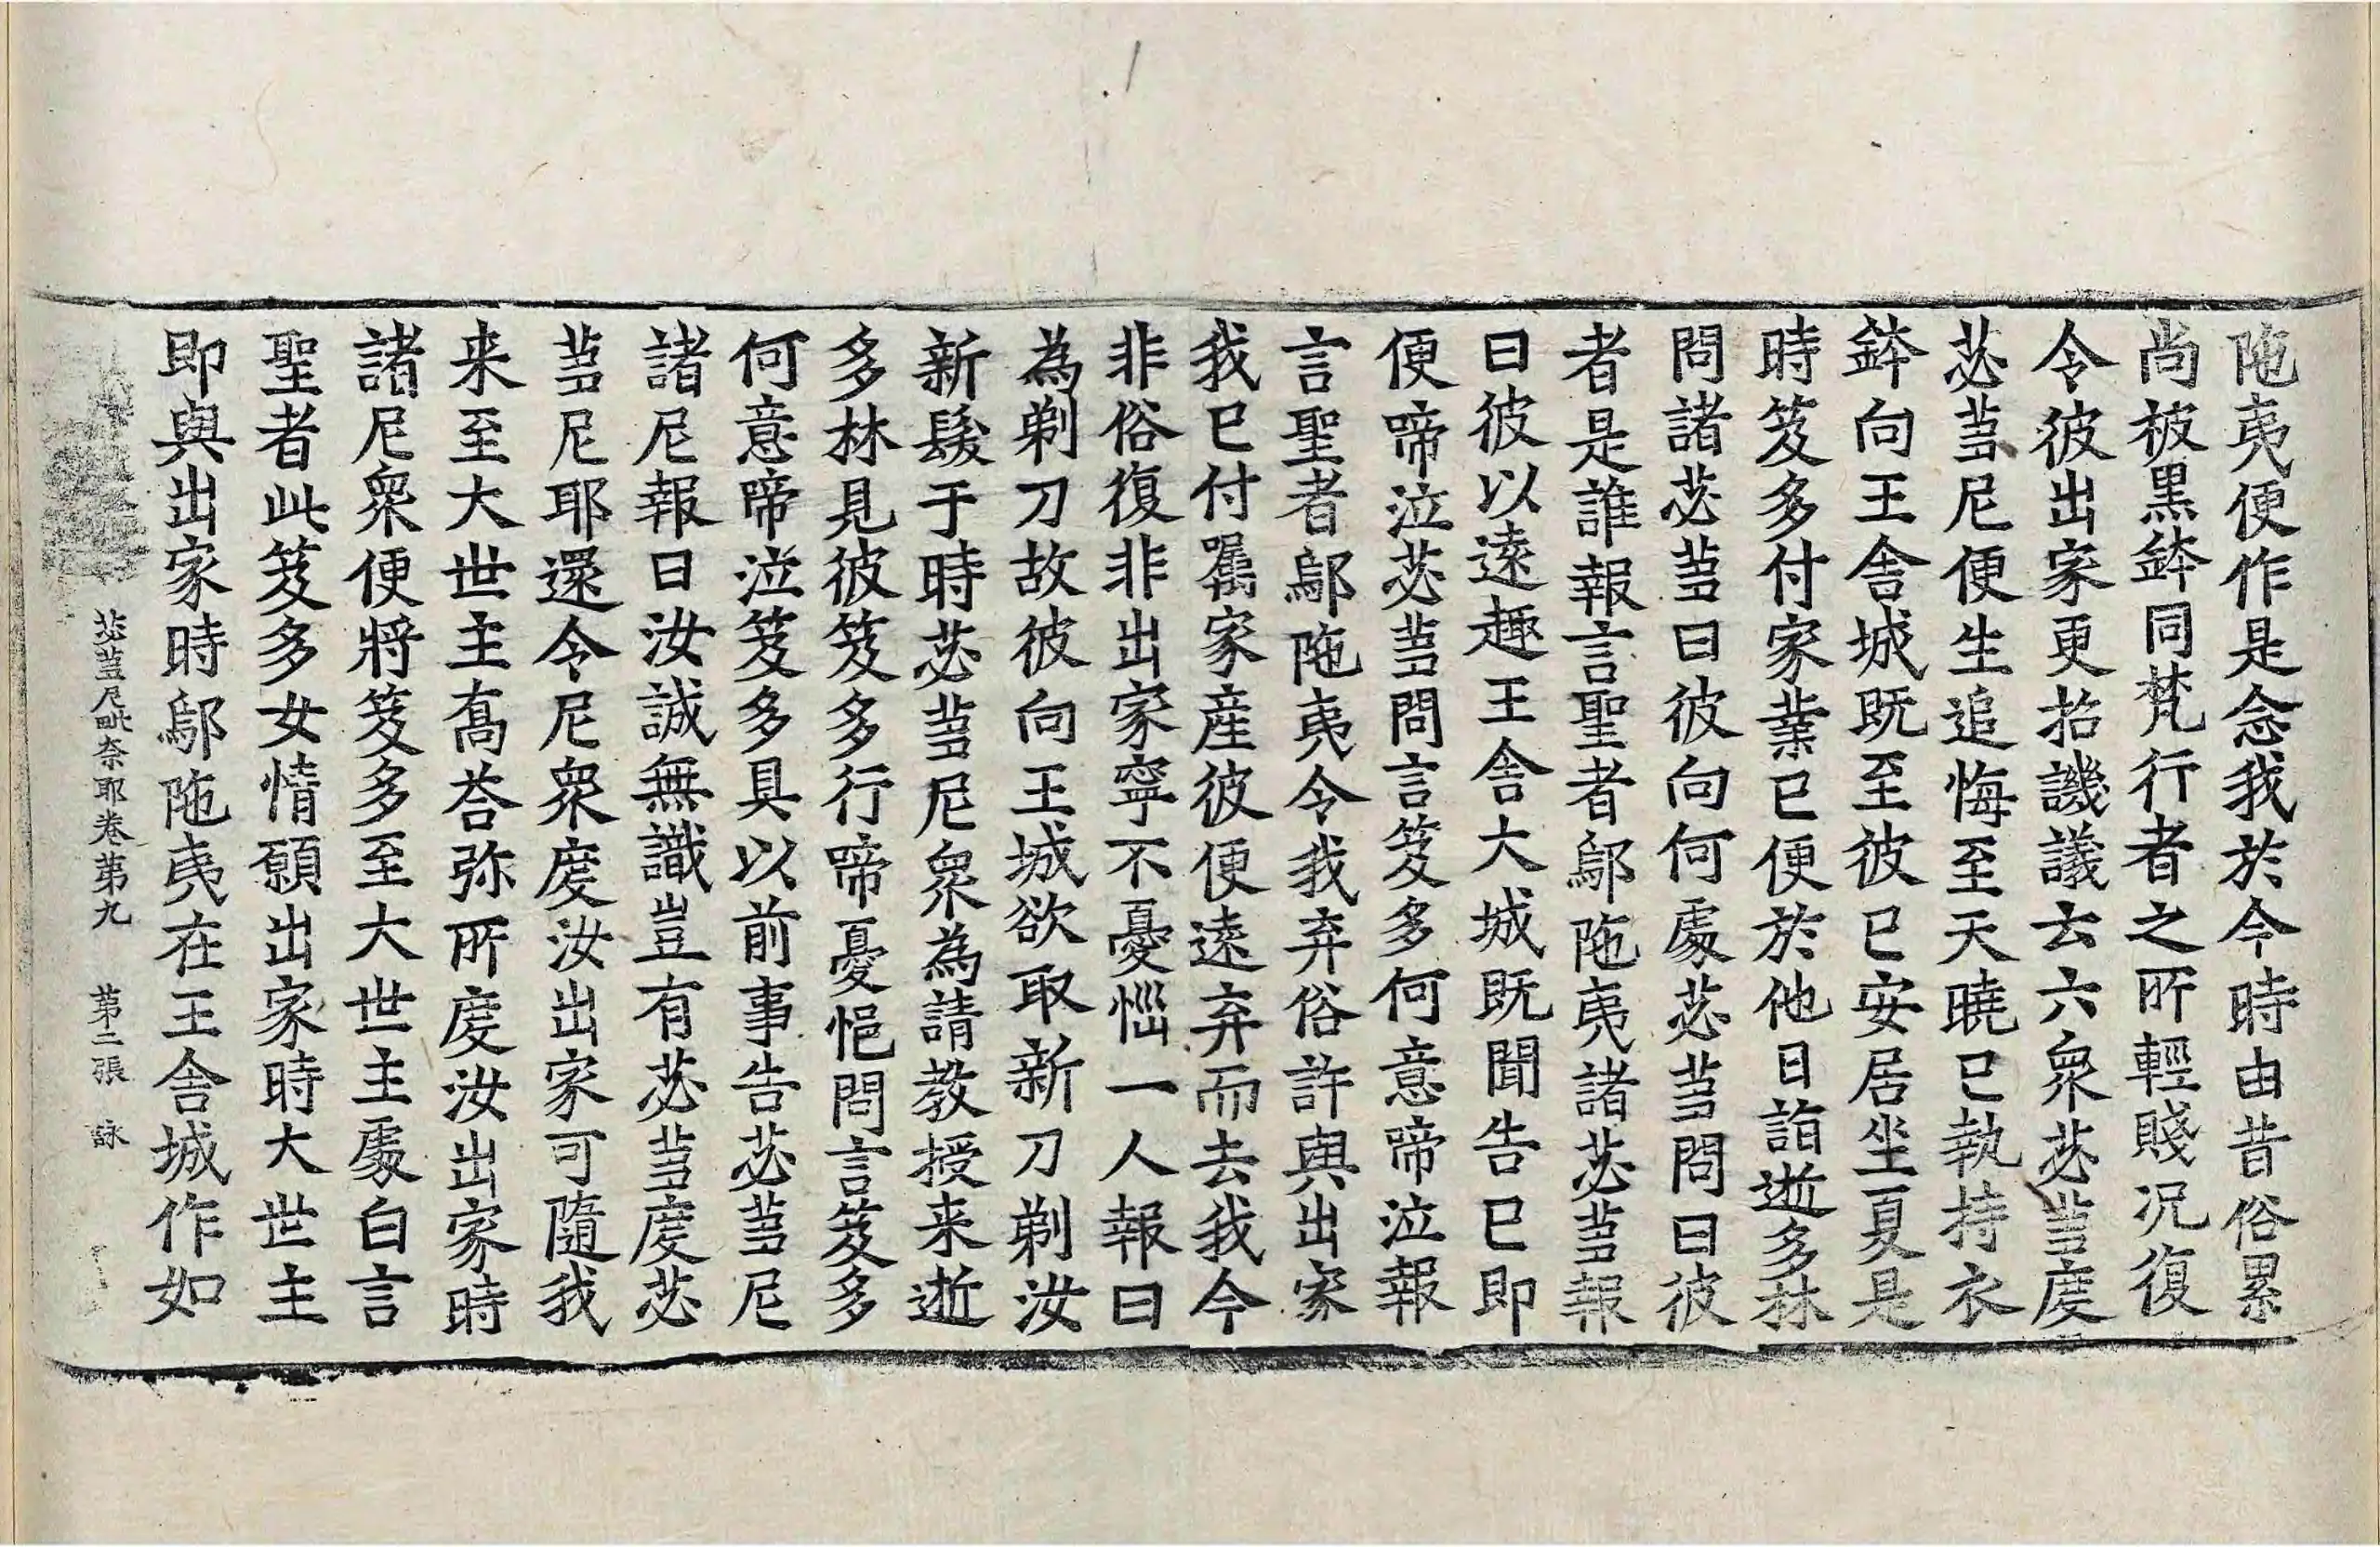 陁夷便作是念我於今時由昔俗累
尚被黑鉢同梵行者之所輕賤况復
令彼出家更招譏議去六衆苾蒭度
苾蒭尼便生追悔至天曉已執持衣
鉢向王舍城旣至彼已安居坐夏是
時笈多付家業已便於他日詣逝多林
問諸苾蒭曰彼向何處苾蒭問曰彼
者是誰報言聖者鄔陁夷諸苾蒭報
曰彼以遠趣王舍大城旣聞告已即
便啼泣苾蒭問言笈多何意啼泣報
言聖者鄔陁夷令我弃俗許與出家
我已付囑家産彼便遠弃而去我今
非俗復非出家寧不憂惱一人報曰
為剃刀故彼向王城欲取新刀剃汝
新髮于時苾蒭尼衆為請教授来逝
多林見彼笈多行啼憂悒問言笈多
何意啼泣笈多具以前事告苾蒭尼
諸尼報曰汝誠無識豈有苾蒭度苾
蒭尼耶還令尼衆度汝出家可隨我
来至大世主喬荅弥所度汝出家時
諸尼衆便將笈多至大世主處白言
聖者此笈多女情願出家時大世主
即與出家時鄔陁夷在王舍城作如
苾蒭尼毗奈耶卷第九 第二張 詠